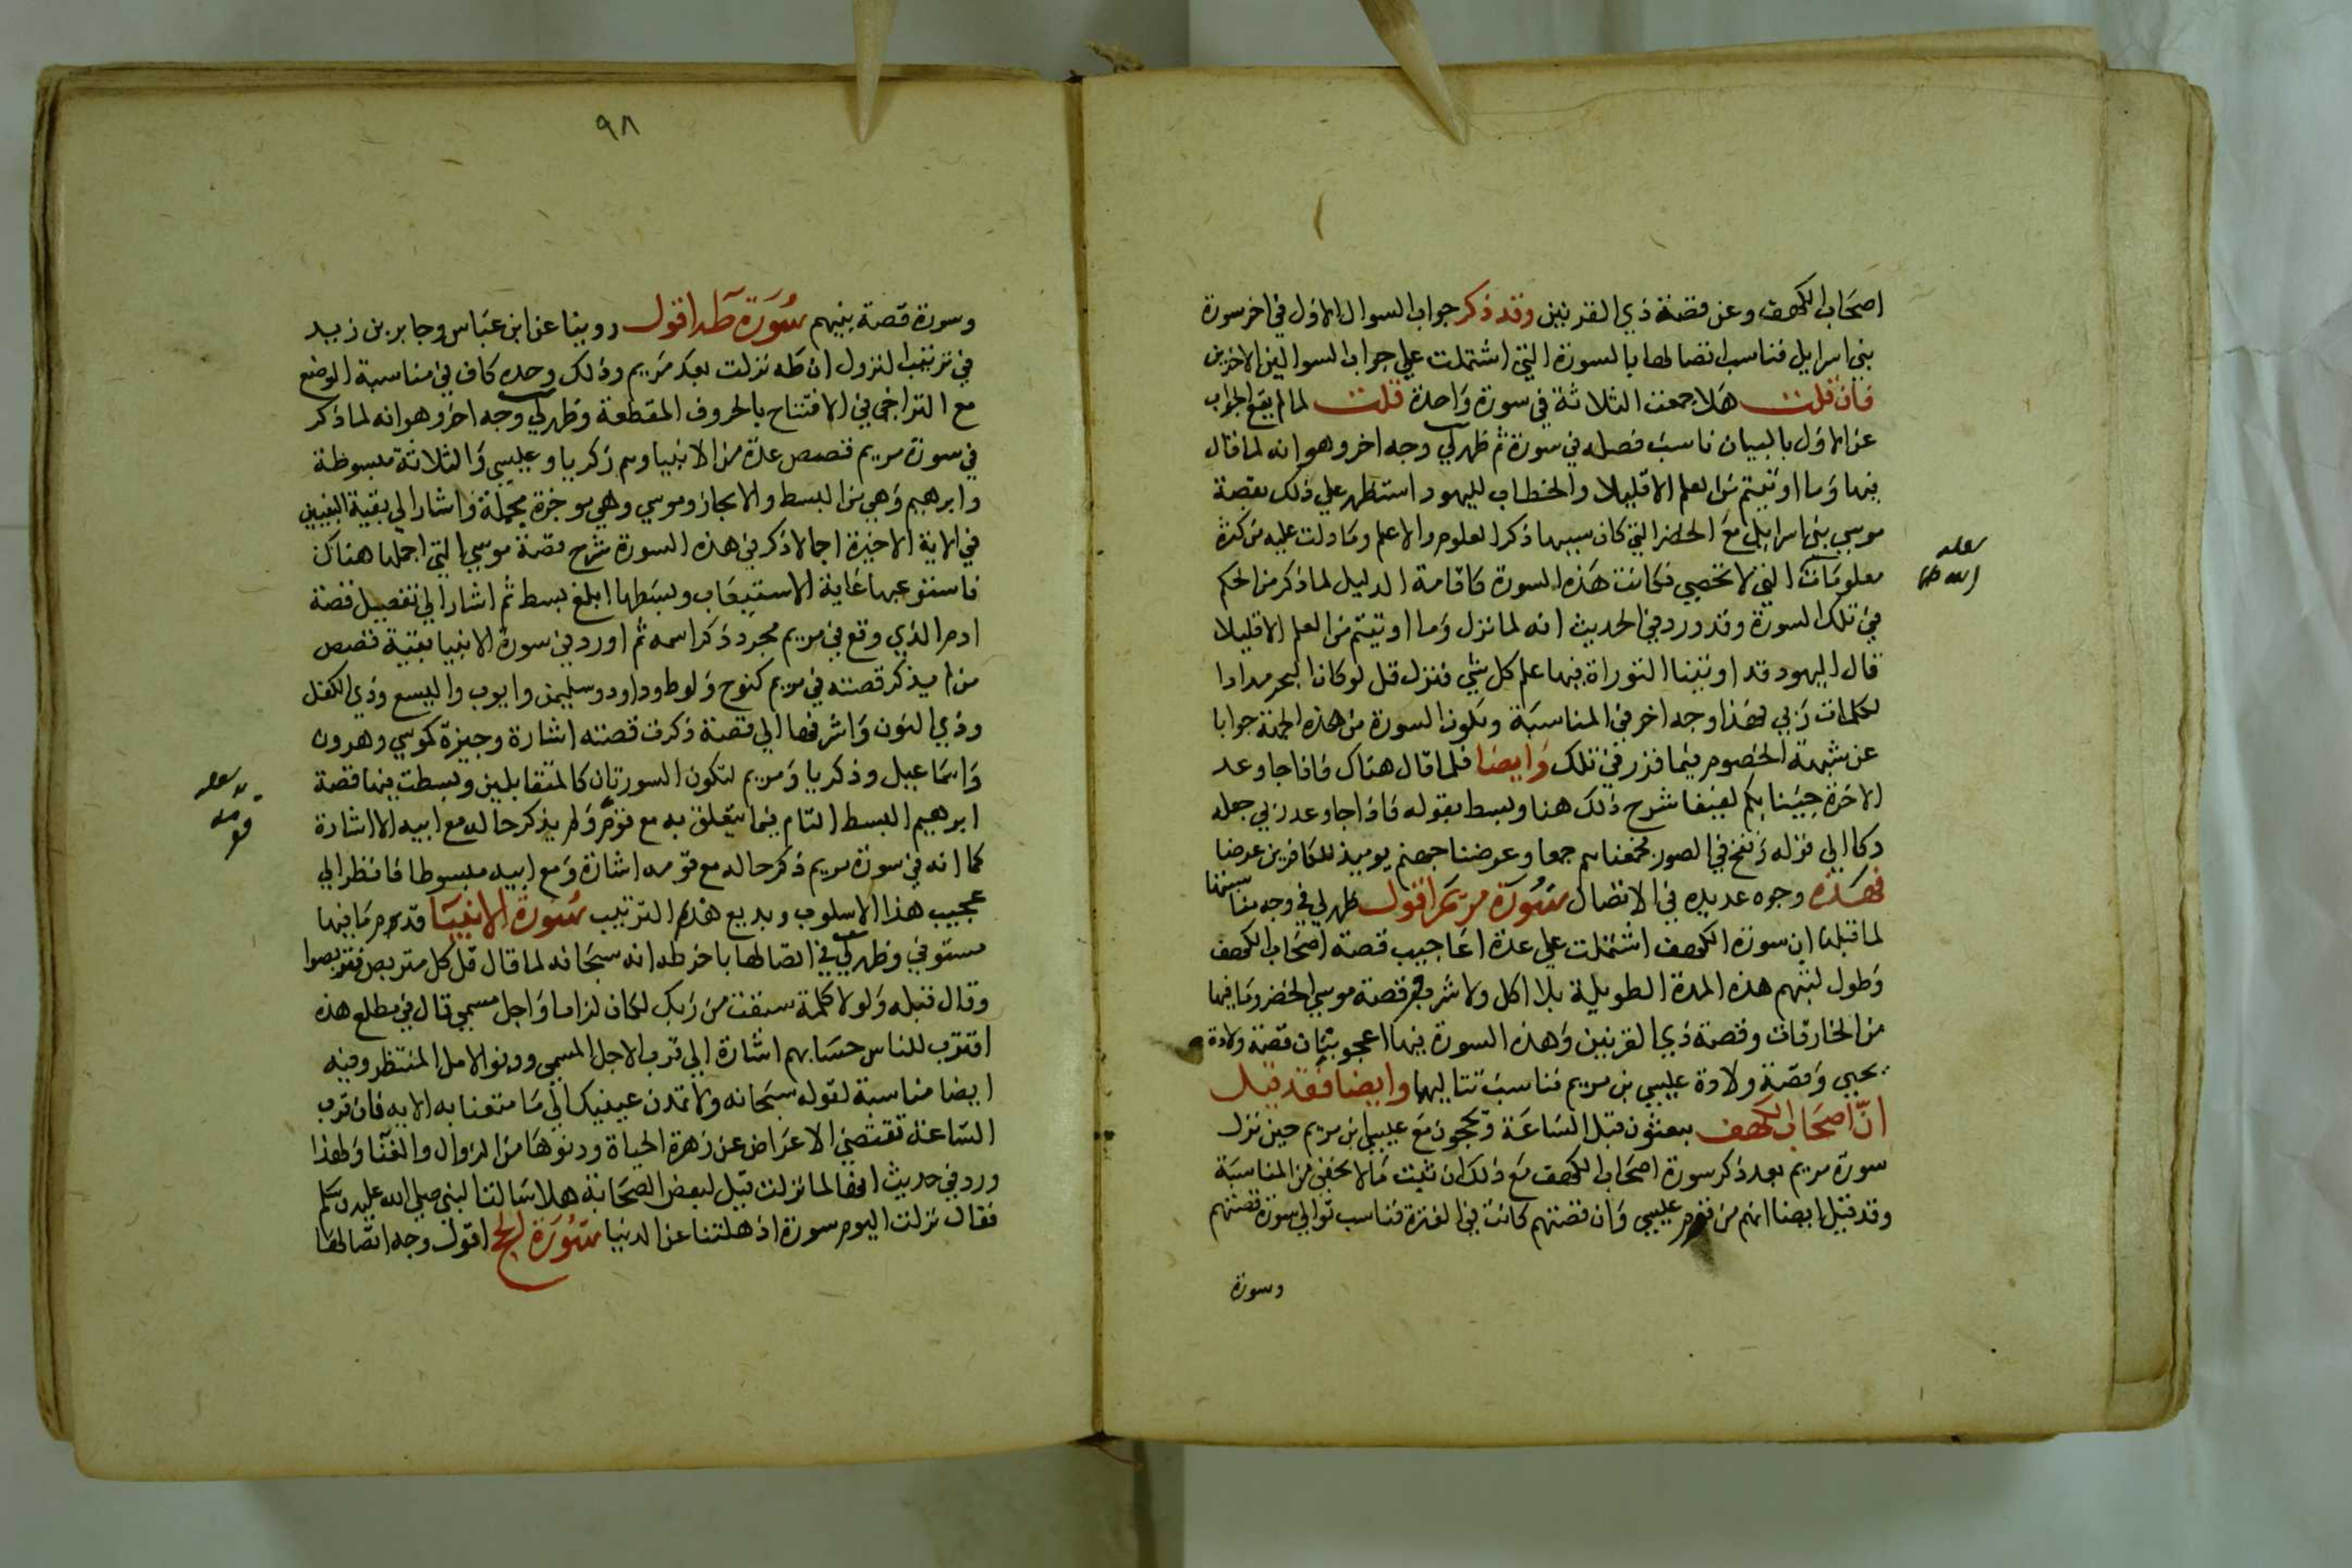 اصحاب الكهف وعن قصة ذي القرنين وقد ذكر جواب السوال الاول في اخر سورة
بني اسرايل فناسب اتصالها بالسورة التي اشتملت علي جواب السوالين الاخرين
فان قلت هلا جمعت الثلاثة في سورة واحدة قلت لما لم يقع الجواب
عن الاول بالبيان ناسب فصله في سورة ثم ظهر لي وجه اخر وهو انه لما قال
فيها وما اوتيتم من العلم الا قليلا والخطاب لليهود استظهر علي ذلك بقصة
موسي بني اسرايل مع الخضر التي كان سببها ذكر العلوم والاعلم وما دلت عليه من كثرة
معلومات التي لا تحصي فكانت هذه السورة كاقامة الدليل لما ذكر من الحكم
في تلك السورة وقد ورد في الحديث انه لما نزل وما اوتيتم من العلم الا قليلا
قال اليهود قد اوتينا التوراة فيها علم كل شي فنزل قل لو كان البحر مدادا
لكلمات ربي فهذا وجه اخر في المناسبة وتكون السورة من هذه الجهة جوابا
عن شبهة الخصوم فيما قزر في تلك وايضا فلما قال هناك فاذا جا وعد
الاخرة جينا بكم لفيفا شرح ذلك هنا وبسط بقوله فاذا جا وعد ربي جعله
دكا الي قوله ونفخ في الصور فجمعناهم جمعا وعرضنا جهنم يوميذ للكافرين عرضا
فهذه وجوه عديده في الاتصال سورة مريم اقول ظهر لي في وجه مناسبتها
لما قبلها ان سورة الكهف اشتملت علي عدة اعاجيب قصة اصحاب الكهف
وطول لبثهم هذه المدة الطويلة بلا اكل ولا شرب وقصة موسي والخضر وما فيها
من الخارقات وقصة ذي القرنين وهذه السورة فيها اعجوبتان قصة ولادة
يحيي وقصة ولادة عيسي بن مريم فناسب تتاليهما وايضا فقد قيل
ان اصحاب الكهف يبعثون قبل الساعة ويحجون مع عيسي ابن مريم حين نزل
سورة مريم بعد ذكر سورة اصحاب الكهف مع ذلك ان ثبت ما لا يخفي من المناسبة
وقد قيل ايضا انهم من قوم عيسي وان قصتهم كانت في الفترة فناسب توالي سورة قصتهم
وسورة
٩٨
وسورة قصة نبيهم سورة طه اقول روينا عن ابن عباس وجابر بن زيد
في ترتيب النزول ان طه نزلت بعد مريم وذلك وحده كاف في مناسبة الوضع
مع التراخي في الافتتاح بالحروف المقطعة وظهر لي وجه اخر وهو انه لما ذكر
في سورة مريم قصص عدة من الانبيا وهم زكريا وعيسي والثلاثة مبسوطة
وابرهيم وهي بين البسط والايجاز وموسي وهي موجزة مجملة واشار الي بقية النبيين
في الاية الاخيرة اجمالا ذكر في هذه السورة شرح قصة موسي التي اجملها هناك
فاستوعبها غاية الاستيعاب وبسطها ابلغ بسط ثم اشار الي تفصيل قصة
ادم الذي وقع في مريم مجرد ذكر اسمه ثم اورد في سورة الانبيا بقية قصص
من لم يذكر قصته في مريم كنوح ولوط وداود وسليمن وايوب واليسع وذي الكفل
وذي النون واشر فيها الي قصة ذكرت قصته اشارة وجيزة كموسي وهرون
واسماعيل وزكريا ومريم لتكون السورتان كالمتقابلين وبسطت فيها قصة
ابرهيم البسط التام فيما يتعلق به مع قومه ولم يذكر حاله مع ابيه الا اشارة
كما انه في سورة مريم ذكر حاله مع قومه اشارة ومع ابيه مبسوطا فانظر الي
عجيب هذا الاسلوب وبديع هذه الترتيب سورة الانبيا قدم ما فيها
مستوفي وظهر لي في اتصالها باخر طه انه سبحانه لما قال قل كل متربص فتربصوا
وقال قبله ولولا كلمة سبقت من ربك لكان لزاما واجل مسمي قال في مطلع هذه
اقترب للناس حسابهم اشارة الي قرب الاجل المسمي ودنو الامل المنتظر وفيه
ايضا مناسبة لقوله سبحانه ولا تمدن عينيك الي ما متعنا به الايه فان قرب
الساعة تقتضي الاعراض عن زهرة الحياة ودنوها من الزوال والفنا ولهذا
ورد في حديث انها لما نزلت قيل لبعض الصحابة هلا سالت النبي صلي الله عليه وسلم
فقال نزلت اليوم سورة اذهلتنا عن الدنيا سورة الحج اقول وجه اتصالها